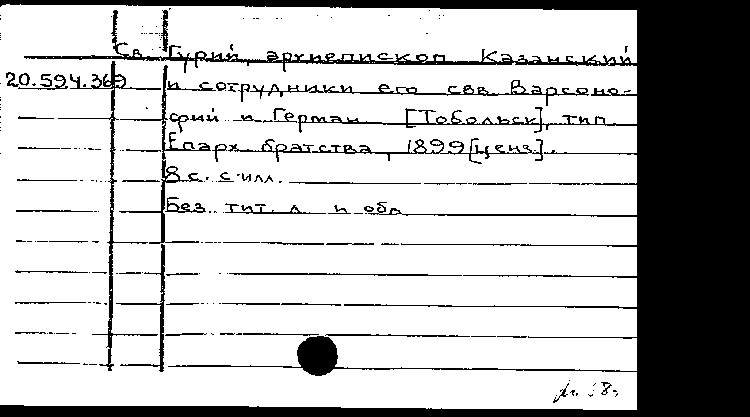 Св. Гурий, архиепископ Казанский
20.594.369 и сотрудники его свв. Варсоно-
фий и Герман. [Тобольск], тип.
Епарх. братства, 1899 [ценз].
8 с. с илл.
Без тит. л. и обл.